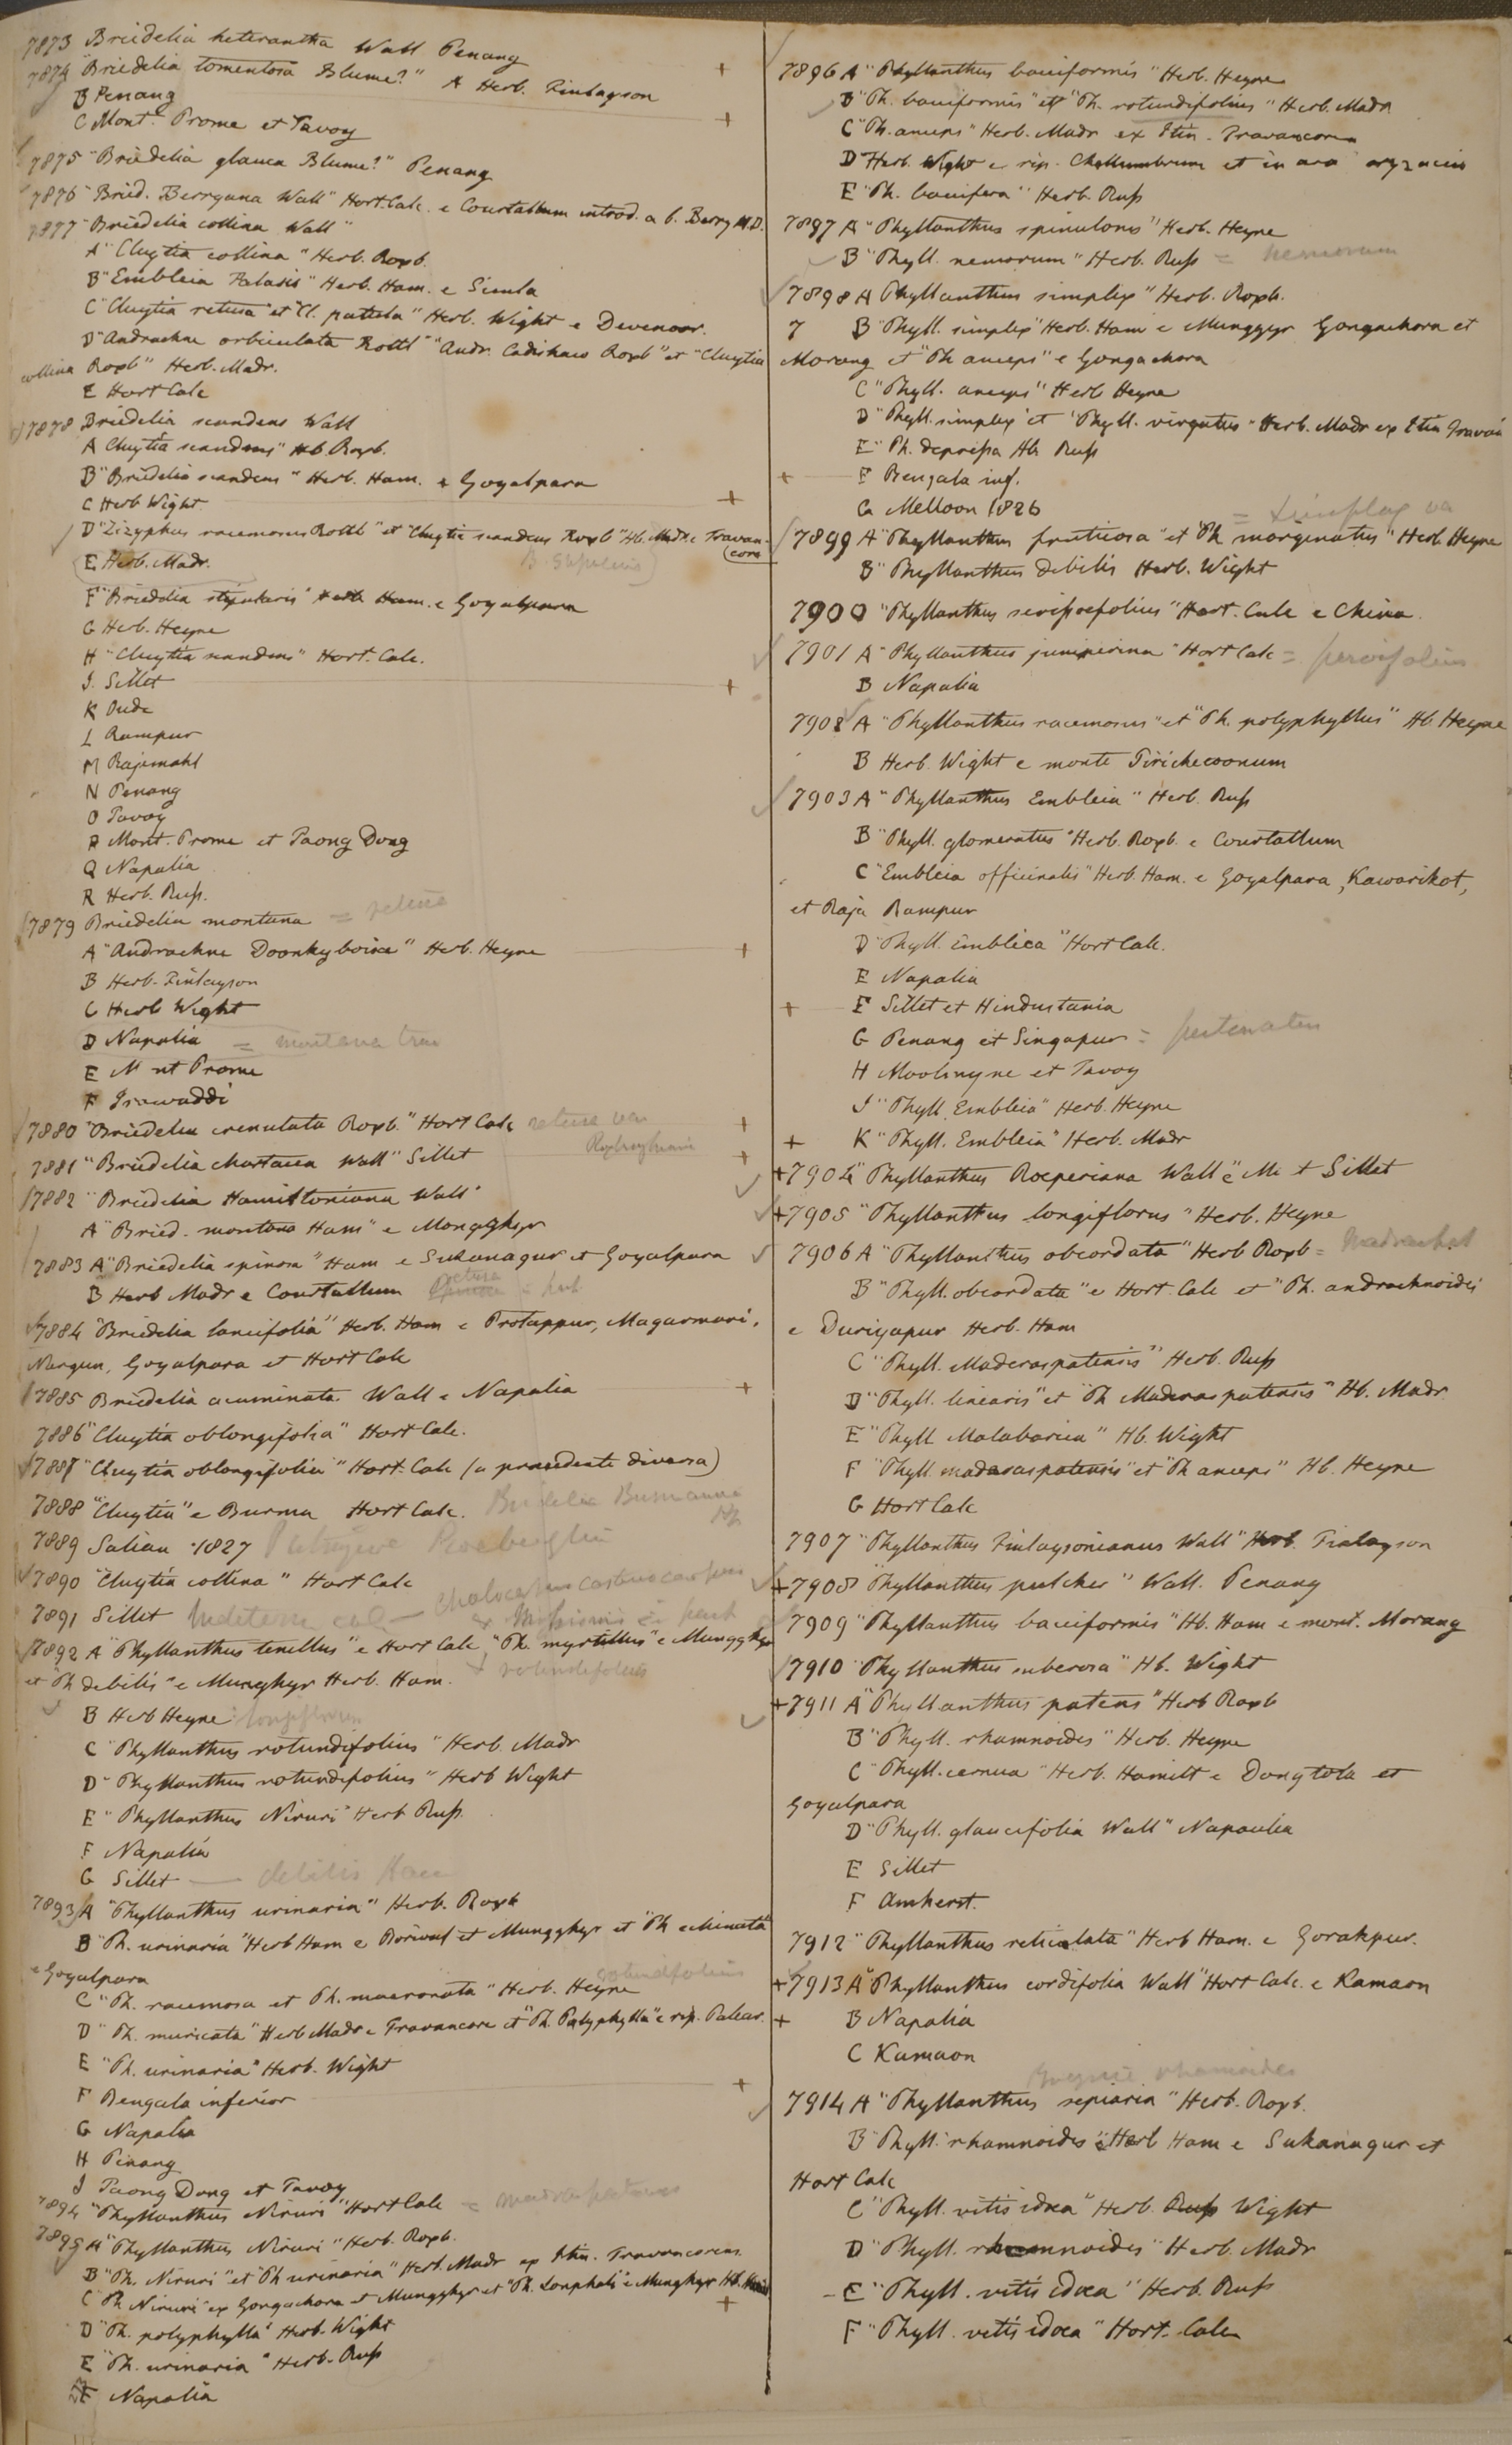 7873 Briedelia heterantha Wall Penang
7874 "Briedelia tomentosa Blume?" A Herb. Finlayson +
B Penang
C Mont. Prome et Tavoy +
7875 "Briedelia glauca Blume?" Penang
7876 "Bried. Berryana Wall" Hort. Calc. e Courtallum introd. a C. Berry M.D.
7877 "Briedelia collina Wall"
A "Cluytia collina" Herb. Roxb.
B "Embleia Palasis" Herb. Ham. e Simla
C "Cluytia retusa" et "Cl. patula" Herb. Wight e Devenoor.
D "Andrachne orbiculata Rottl" "Andr. Cadishaco Roxb" et "Cluytia
collina Roxb" Herb. Madr.
E Hort Calc
7878 Briedelia scandens Wall
A Cluytia scandens" Hb. Roxb.
B "Briedelia scandens" Herb. Ham. e Goyalpara
C Herb Wight. +
D "Zizyphus racemosus Rottl" et "Cluytia scandens Roxb" Hb. Madr. e Travan-
(core
E Herb. Madr.
F "Briedelia stipularis" Herb Ham. e Goyalpara
G Herb. Heyne
H "Cluytia scandens" Hort. Calc.
I. Sillet +
K Oude
L Rampur
M Rajemahl
N Penang
O Tavoy
P Mont. Prome et Taong Dong
Q Napalia
R Herb. Russ.
7879 Briedelia montana = retusa
A "Andrachne Doonkyboica" Herb. Heyne +
B Herb. Finlayson
C Herb Wight
D Napalia = montana
E M nt Prome
F Irawaddi
7880 "Briedelia crenulata Roxb." Hort Calc retusa var +
Roxburghiana
7881 "Briedelia chartacea Wall" Sillet +
7882 "Briedelia Hamiltoniana Wall"
A "Bried. montana Ham" e Mongghyr
7883 A "Briedelia spinosa" Ham e Sukanagur et Goyalpara
B Herb Madr e Courtallum retusa
7884 "Briedelia lancifolia" Herb. Ham e Protappur, Magarmari,
Nargun, Goyalpara et Hort Calc
7885 Briedelia acuminata Wall e Napalia +
7886 "Cluytia oblongifolia" Hort Calc.
7887 "Cluytia oblongifolia" Hort. Calc (a precedente diversa)
7888 "Cluytia" e Burma Hort Calc. Bridelia Burmanna
7889 Salian 1827 Putranjiva Roxburghii
7890 "Cluytia collina" Hort Calc
7891 Sillet
7892 A "Phyllanthus tenellus" e Hort Calc, "Ph. myrtillus" e Mungghyr
et "Ph debilis" e Munghyr Herb. Ham. rotundifolius
B Herb Heyne longiflorum
C "Phyllanthus rotundifolius" Herb. Madr
D "Phyllanthus rotundifolius" Herb Wight
E "Phyllanthus Niruri" Herb Russ.
F Napalia
G Sillet — debilis Ham
7893 A "Phyllanthus urinaria" Herb. Roxb
B "Ph. urinaria" Herb Ham e Moriwal et Mungghyr et "Ph echinata"
e Goyalpara
C "Ph. racemosa et Ph. macronata" Herb. Heyne rotundifolius
D "Ph. muricata" Herb Madr e Travancore et "Ph. Polyphylla" e rip. Palear.
E "Ph. urinaria" Herb. Wight
F Bengala inferior +
G Napalia
H Penang
I Taong Dong et Tavoy
7894 "Phyllanthus Niruri" Hort Calc = madraspatana
7895 A "Phyllanthus Niruri" Herb. Roxb.
B "Ph. Niruri" et "Ph urinaria" Herb. Madr ex Itin. Travancorens.
C "Ph Niruri" ex Gongachora et Mungghyr et "Ph. Lonphali" e Munghyr Hb. Ham +
D "Ph. polyphylla" Herb. Wight
E "Ph. urinaria" Herb. Russ
F Napalia
7896 A "Phyllanthus bacciformis" Herb. Heyne
B "Ph. bacciformis" et "Ph. rotundifolius" Herb. Madr
C "Ph. anceps" Herb. Madr ex Itin. Travancoren
D "Herb. Wight e rip. Chellumbrum et in ora oryzaceis
E "Ph. baccifera" Herb. Russ
7897 A "Phyllanthus spinulosus" Herb. Heyne
B "Phyll. nemorum" Herb. Russ = nemorum
7898 A Phyllanthus simplex" Herb. Roxb.
7 B "Phyll. simplex" Herb. Ham e Mungghyr Gongachora et
Morang et "Ph anceps" e Gongachora
C "Phyll. anceps" Herb Heyne
D "Phyll. simplex" et "Phyll. virgatus" Herb. Madr ex Itin Travan
E "Ph. depressa Hb Russ
+ F Bengala inf.
G Melloon 1826
= simplex va
7899 A "Phyllanthus fruticosa" et "Ph marginatus" Herb. Heyne
B "Phyllanthus debilis Herb. Wight
7900 "Phyllanthus serissaefolius" Hort. Calc e China
7901 A "Phyllanthus juniperina" Hort Calc =
B Napalia
7902 A "Phyllanthus racemosus" et "Ph. polyphyllus" Hb. Heyne
B Herb. Wight e monte Tirichecoonum
7903 A "Phyllanthus Embleia" Herb. Russ
B "Phyll. glomeratus" Herb. Roxb. e Courtallum
C "Embleia officinalis" Herb. Ham. e Goyalpara, Kawarikot,
et Raja Rampur
D "Phyll. Emblica" Hort Calc.
E Napalia
+ F Sillet et Hindustania
G Penang et Singapur = pectinatus
H Moolmyne et Tavoy
I "Phyll. Embleia" Herb. Heyne
+ K "Phyll. Embleia" Herb. Madr
+7904 "Phyllanthus Roeperiana Wall" e M t Sillet
+7905 "Phyllanthus longiflorus" Herb. Heyne
7906 A "Phyllanthus obcordata" Herb Roxb =
B "Phyll. obcordata" e Hort. Calc et "Ph. andrachnoides
e Duriyapur Herb. Ham
C "Phyll. Maderaspatensis" Herb. Russ
D "Phyll. linearis" et "Ph Maderaspatensis" Hb. Madr.
E "Phyll Malabarica" Hb. Wight
F "Phyll. maderaspatensis" et "Ph anceps" Hb. Heyne
G Hort Calc
7907 "Phyllanthus Finlaysonianus Wall" Herb. Finlayson
+7908 "Phyllanthus pulcher" Wall. Penang
7909 "Phyllanthus bacciformis" Hb. Ham e mont. Morang
7910 "Phyllanthus suberosa" Hb. Wight
+7911 A "Phyllanthus patens" Herb Roxb
B "Phyll. rhamnoides" Herb. Heyne
C "Phyll. cernua" Herb. Hamilt e Dongtola et
Goyalpara
D "Phyll. glaucifolia Wall" Napaulia
E Sillet
F Amherst.
7912 "Phyllanthus reticulata" Herb Ham. e Gorakpur.
+7913 A "Phyllanthus cordifolia Wall" Hort Calc. e Kamaon
+ B Napalia
C Kamaon
rhamnoides
7914 A "Phyllanthus sepiaria" Herb. Roxb.
B "Phyll. rhamnoides" Herb Ham e Sukanagur et
Hort Calc
C "Phyll. vitis idaea" Herb. Russ Wight
D "Phyll. rhamnoides" Herb. Madr
E "Phyll. vitis idaea" Herb. Russ
F "Phyll. vitis idaea" Hort. Calc